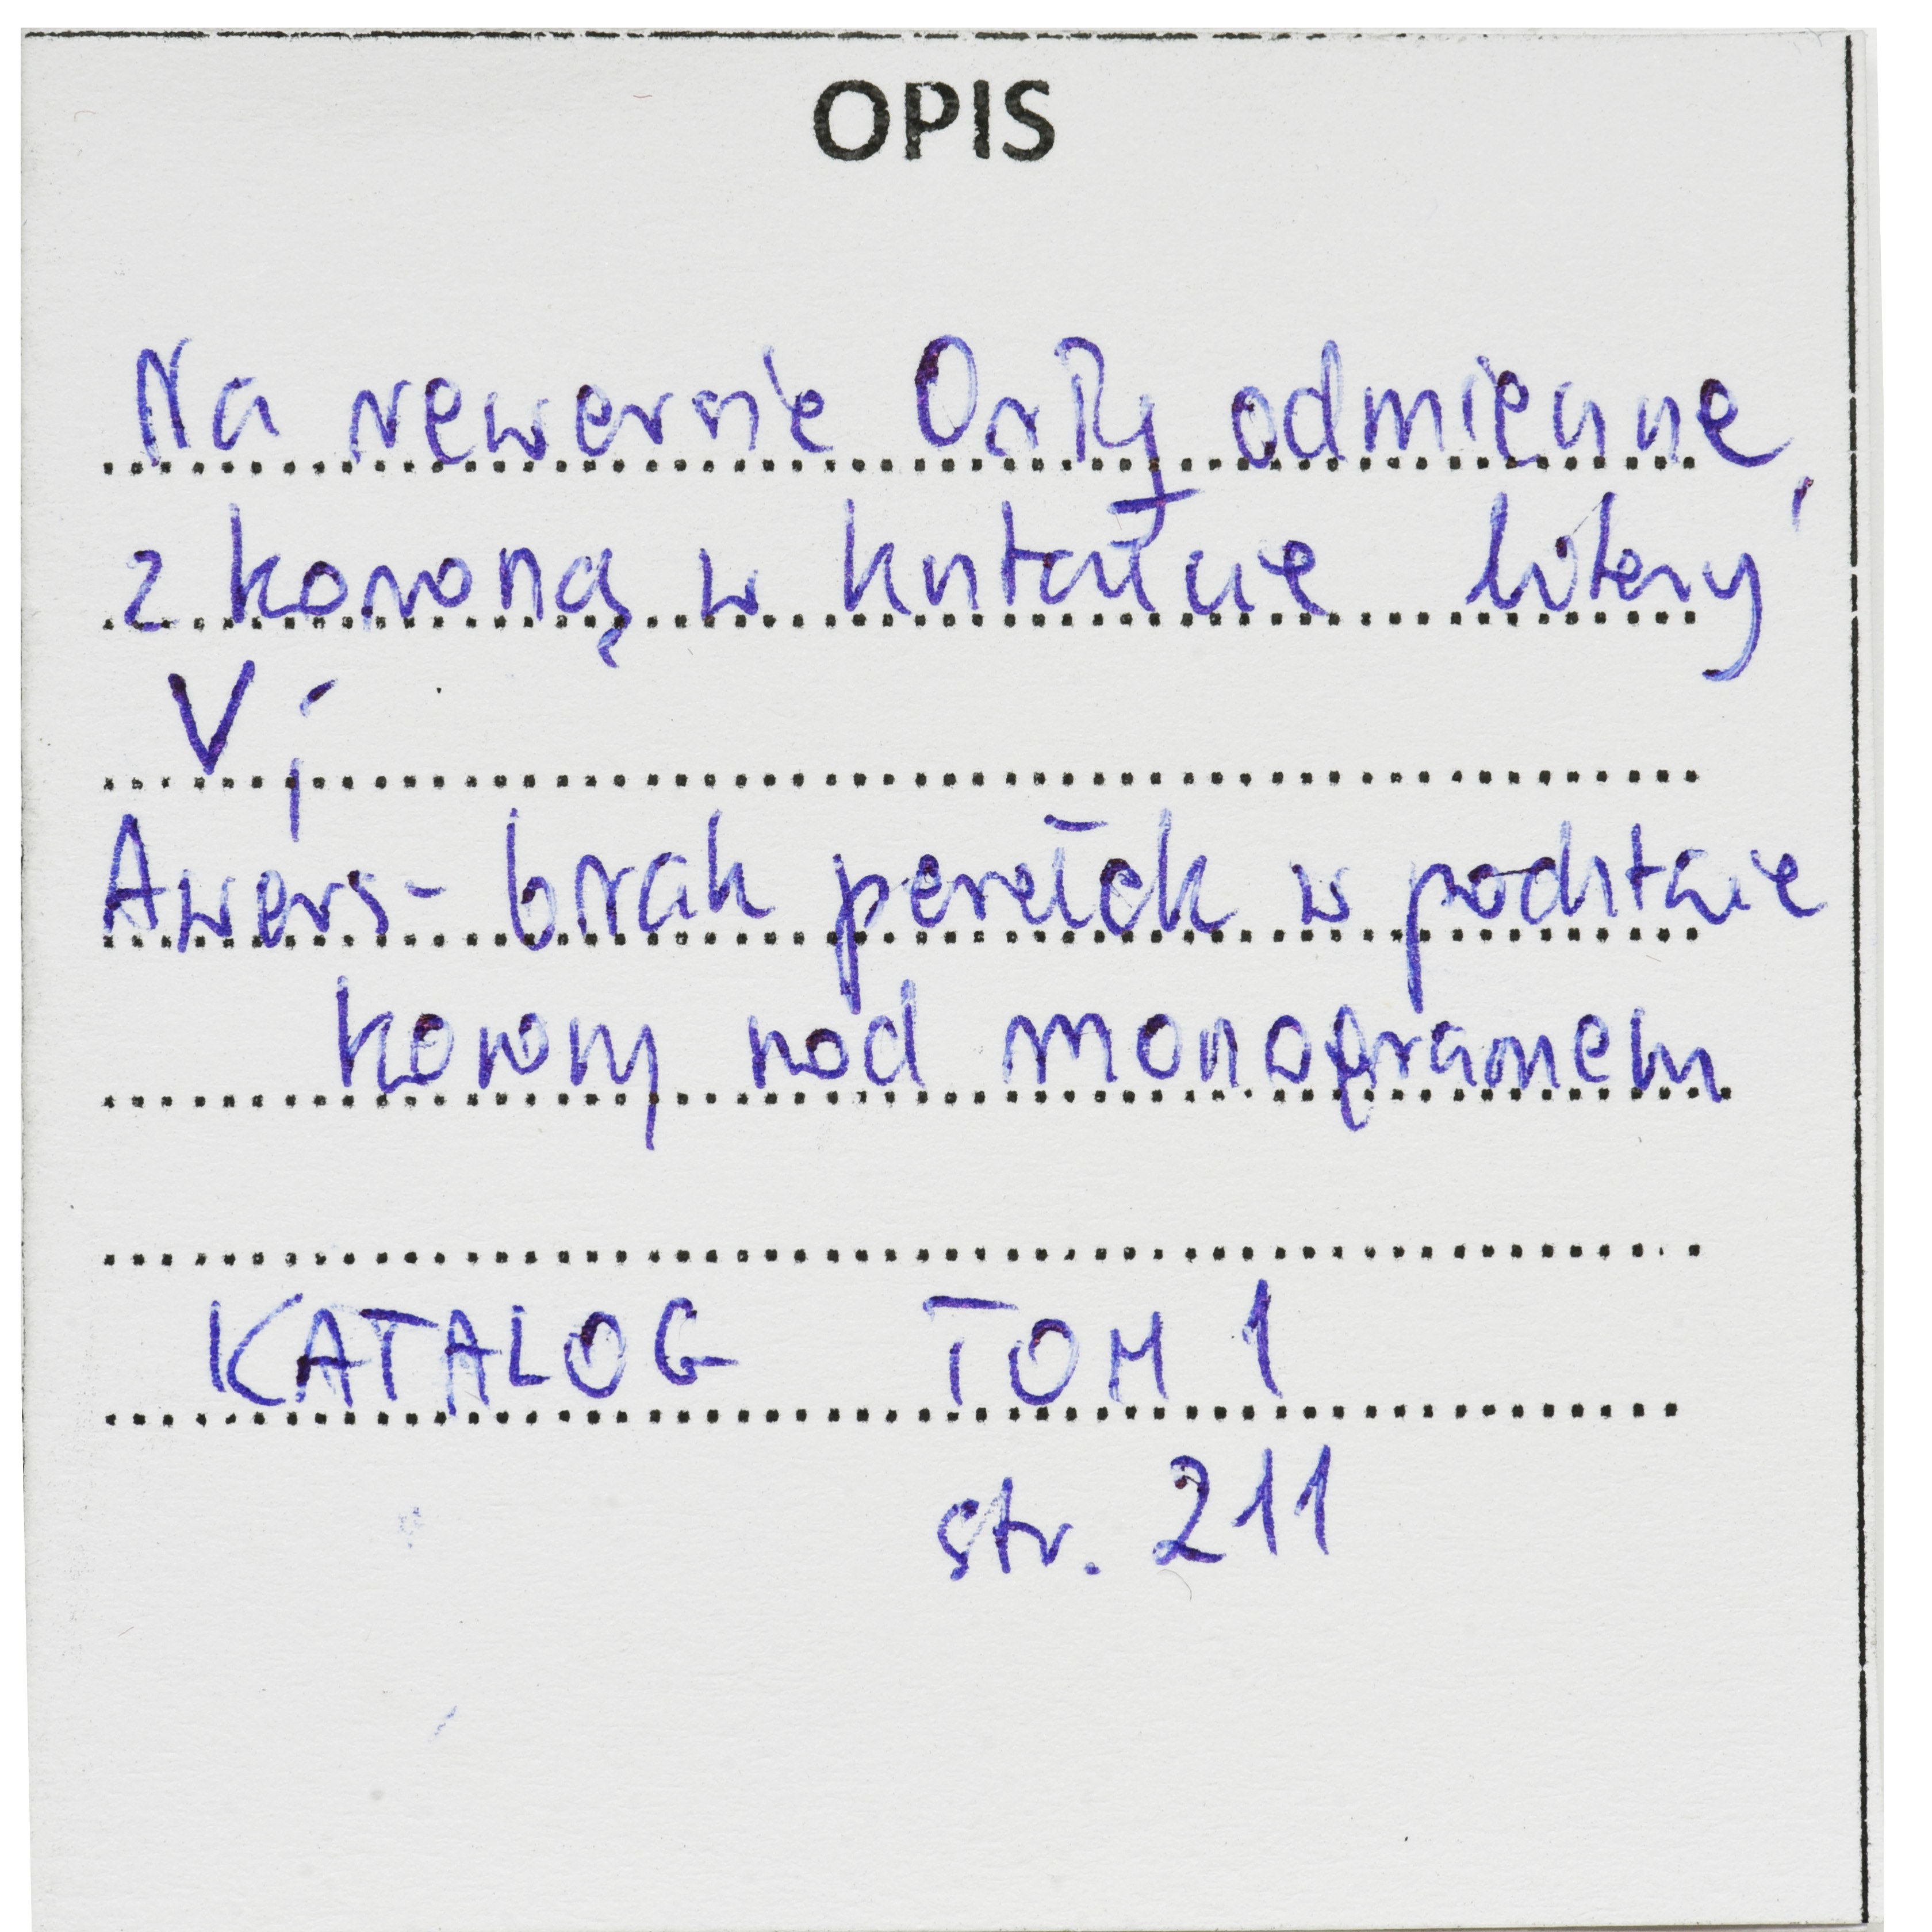 OPIS
Na rewersie Orły odmienne,
z koroną w kształcie litery
V;
Awers - brak perełek w podstawie
korony nad monogramem
KATALOG TOM 1
str. 211